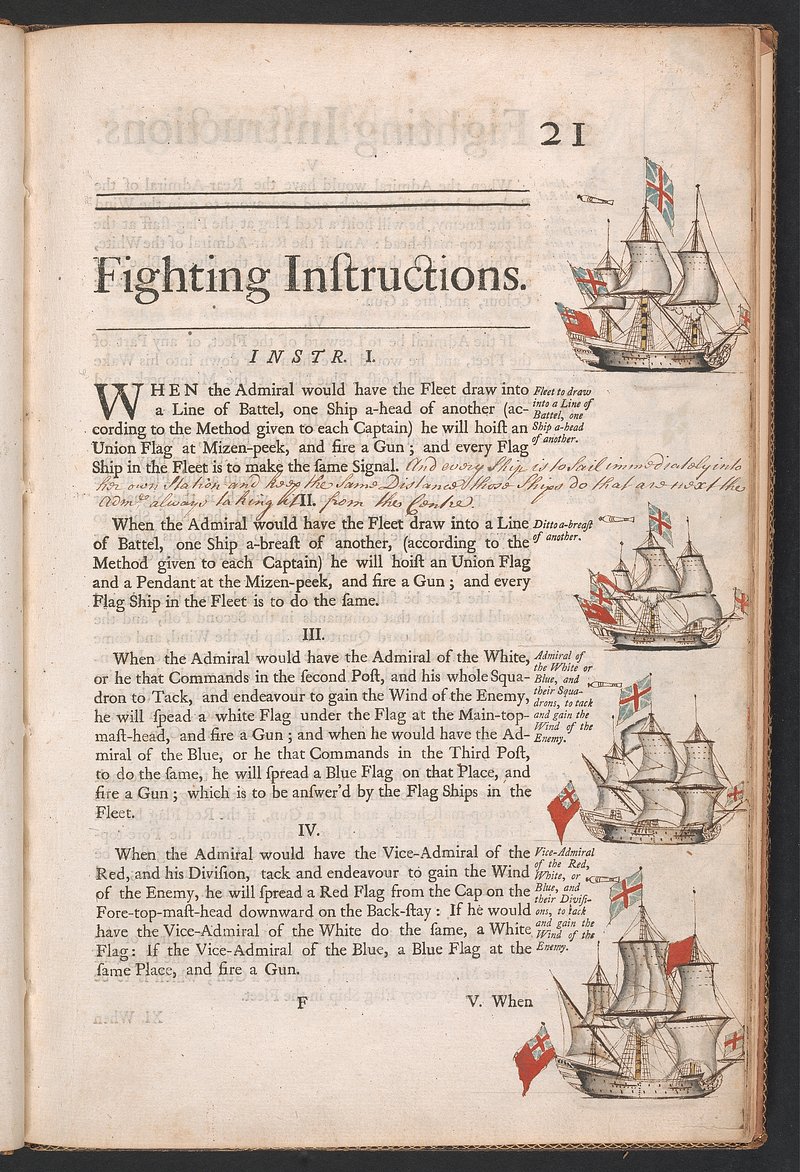 21
Fighting Inſtructions.
INSTR. I.
WHEN the Admiral would have the Fleet draw into
a Line of Battel, one Ship a-head of another (ac-
cording to the Method given to each Captain) he will hoiſt an
Union Flag at Mizen-peek, and fire a Gun; and every Flag
Ship in the Fleet is to make the ſame Signal. And every Ship is to sail immediately into
her own Station and keep the same Distance those Ships do that are next the
Admˡˡ always taking it from the Centre.
Fleet to draw
into a Line of
Battel, one
Ship a-head
of another.
II.
When the Admiral would have the Fleet draw into a Line
of Battel, one Ship a-breaſt of another, (according to the
Method given to each Captain) he will hoiſt an Union Flag
and a Pendant at the Mizen-peek, and fire a Gun; and every
Flag Ship in the Fleet is to do the ſame.
Ditto a-breaſt
of another.
III.
When the Admiral would have the Admiral of the White,
or he that Commands in the ſecond Poſt, and his whole Squa-
dron to Tack, and endeavour to gain the Wind of the Enemy,
he will ſpead a white Flag under the Flag at the Main-top-
maſt-head, and fire a Gun; and when he would have the Ad-
miral of the Blue, or he that Commands in the Third Poſt,
to do the ſame, he will ſpread a Blue Flag on that Place, and
fire a Gun; which is to be anſwer'd by the Flag Ships in the
Fleet.
Admiral of
the White or
Blue, and
their Squa-
drons, to tack
and gain the
Wind of the
Enemy.
IV.
When the Admiral would have the Vice-Admiral of the
Red, and his Diviſion, tack and endeavour to gain the Wind
of the Enemy, he will ſpread a Red Flag from the Cap on the
Fore-top-maſt-head downward on the Back-ſtay: If he would
have the Vice-Admiral of the White do the ſame, a White
Flag: If the Vice-Admiral of the Blue, a Blue Flag at the
ſame Place, and fire a Gun.
Vice-Admiral
of the Red,
White, or
Blue, and
their Diviſi-
ons, to tack
and gain the
Wind of the
Enemy.
F
V. When